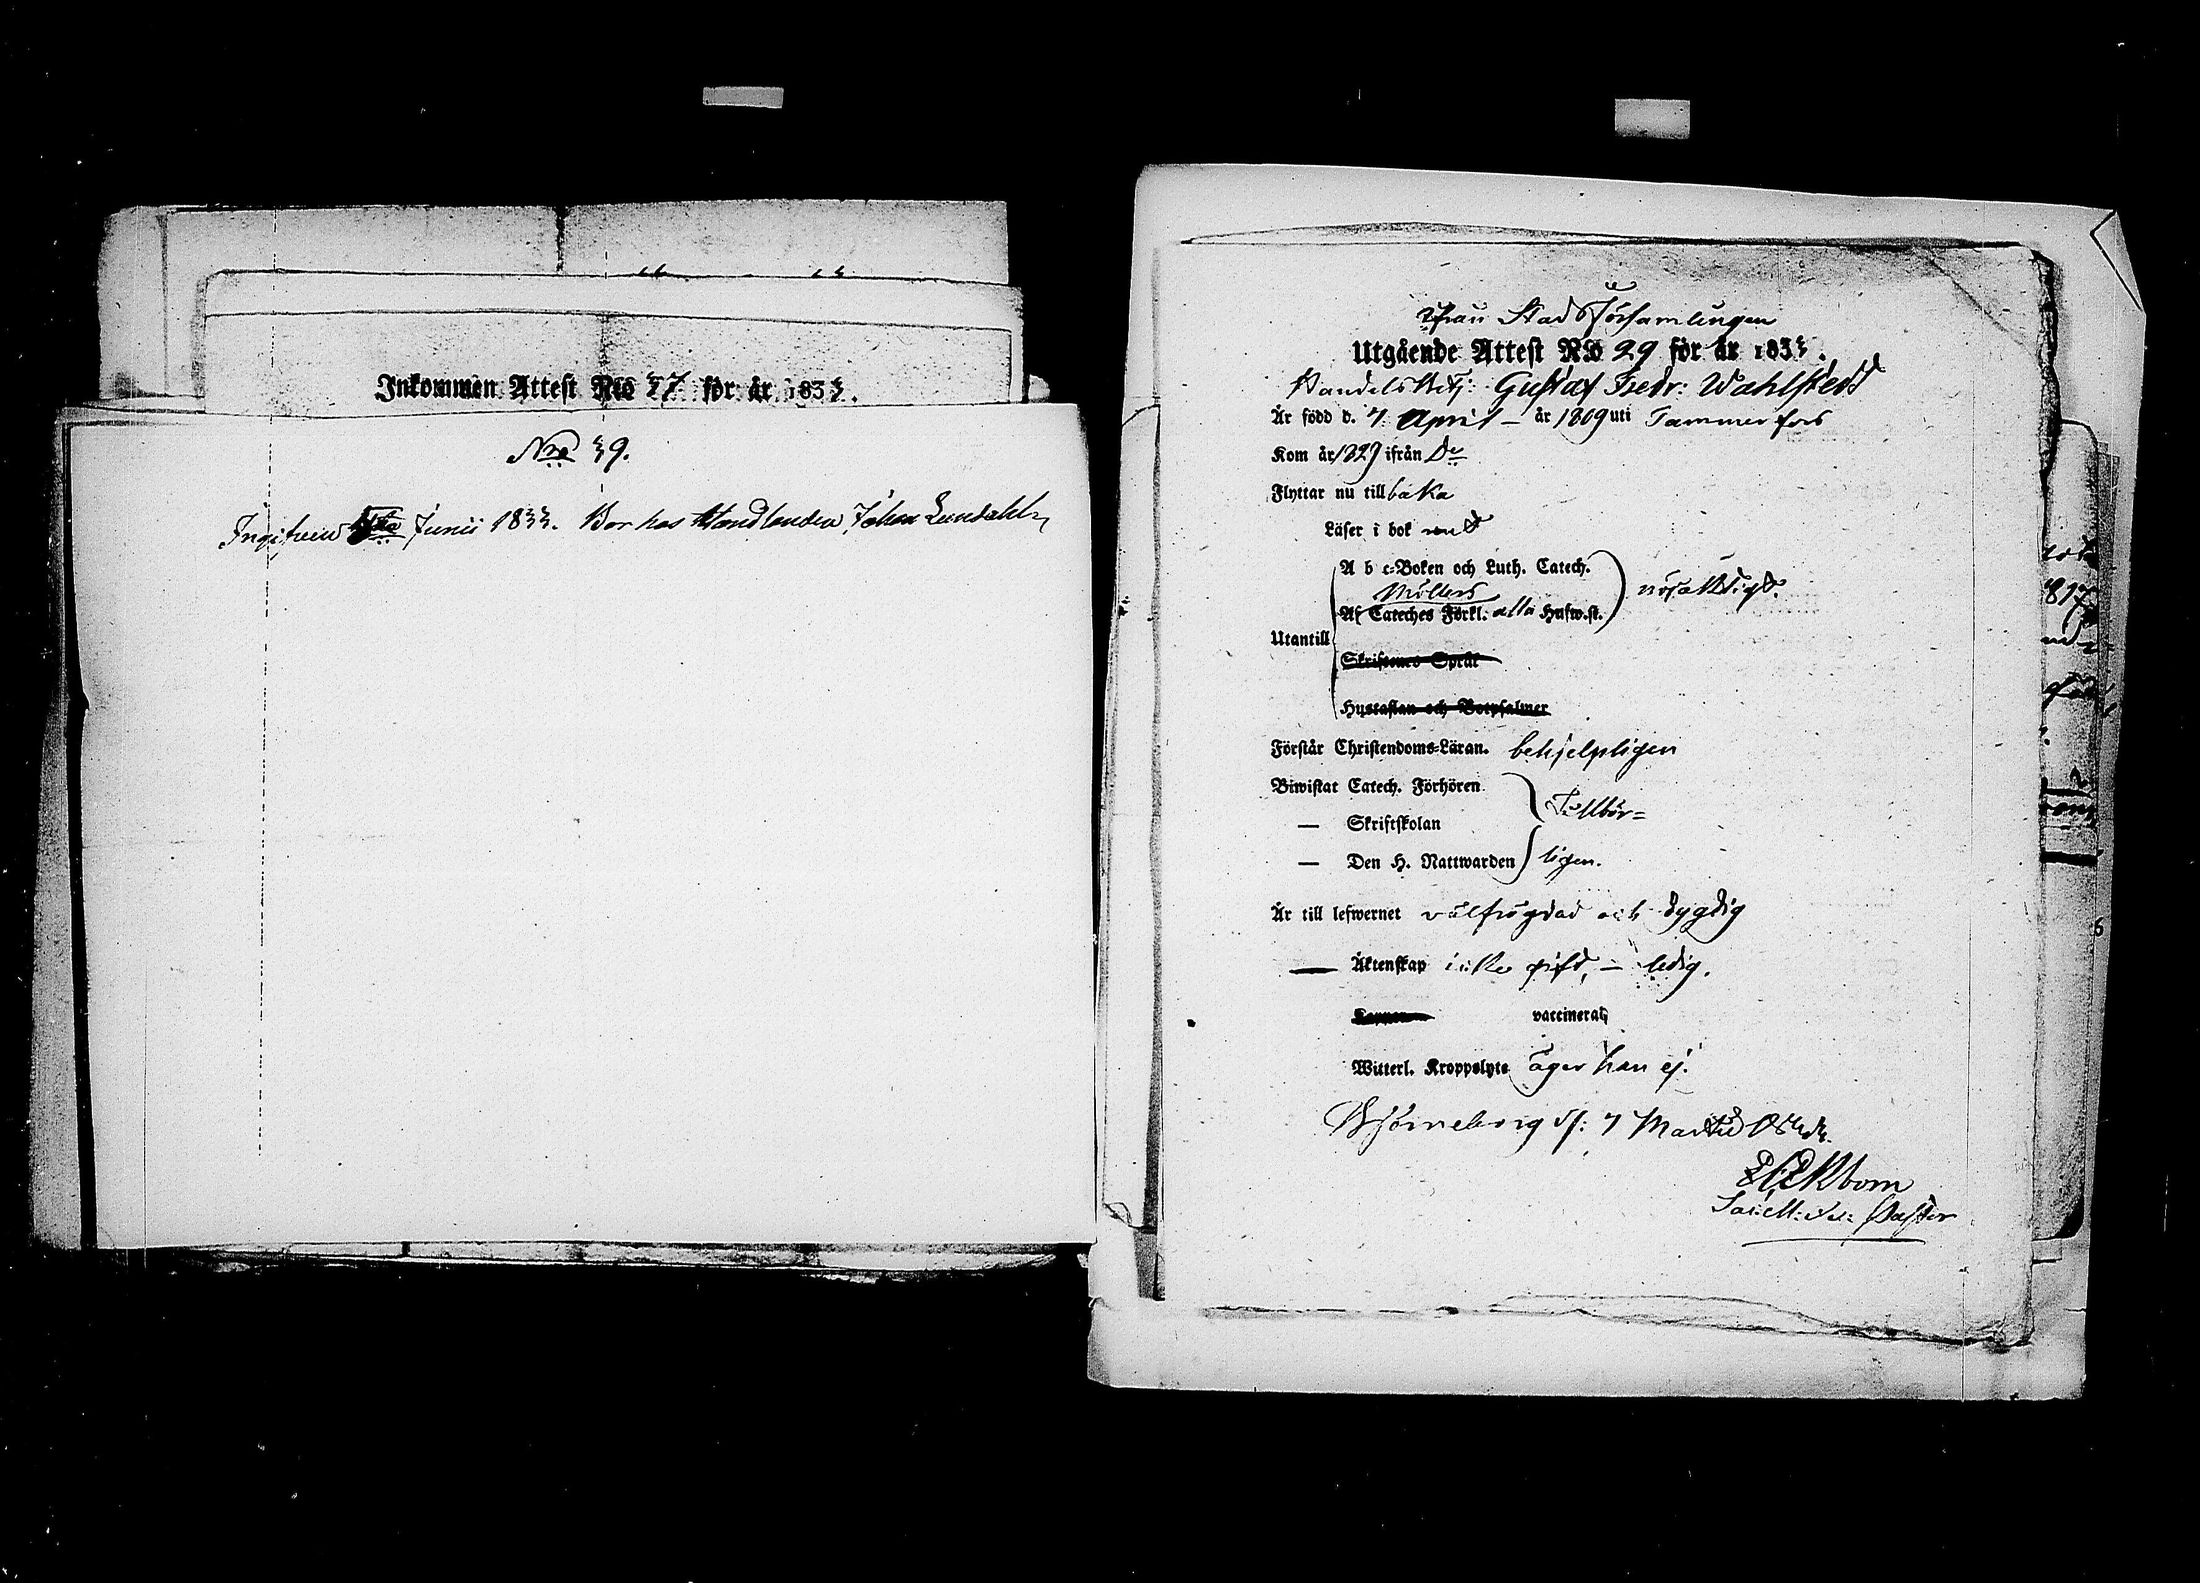 Inkommen Attest N:o 77 för år 1833.
Nro 39.
Ingifven Junii 1833. Bor hos Handlanden Johan Lundahl
ifrån Stads Församlingen
Utgående Attest N:o 29 för år 1833.
Handels Betj: Gustaf Fredr: Wahlstedt
Är född d. 7 April – år 1809 uti Tammerfors
Kom år 1827 ifrån Do
Flyttar nu till baka
Läser i bok med
A b c-Boken och Luth. Catech.
Möllers
Af Cateches Förkl. alla Hufw.st.
nöjaktigt.
Utantill
Skriftenes Språk
Hustaflan och Botpsalmer
Förstår Christendoms-Läran. behjelpligen
Biwistat Catech. Förhören
— Skriftskolan
Tillbör=
— Den H. Nattwarden
ligen.
Är till lefwernet välfrägdad och dygdig
— Äktenskap icke gift, – ledig.
vaccinerad
Witterl. Kroppslyte äger han ej.
Björneborg d: 7 Martii 1833.
Ekbom
Pastor